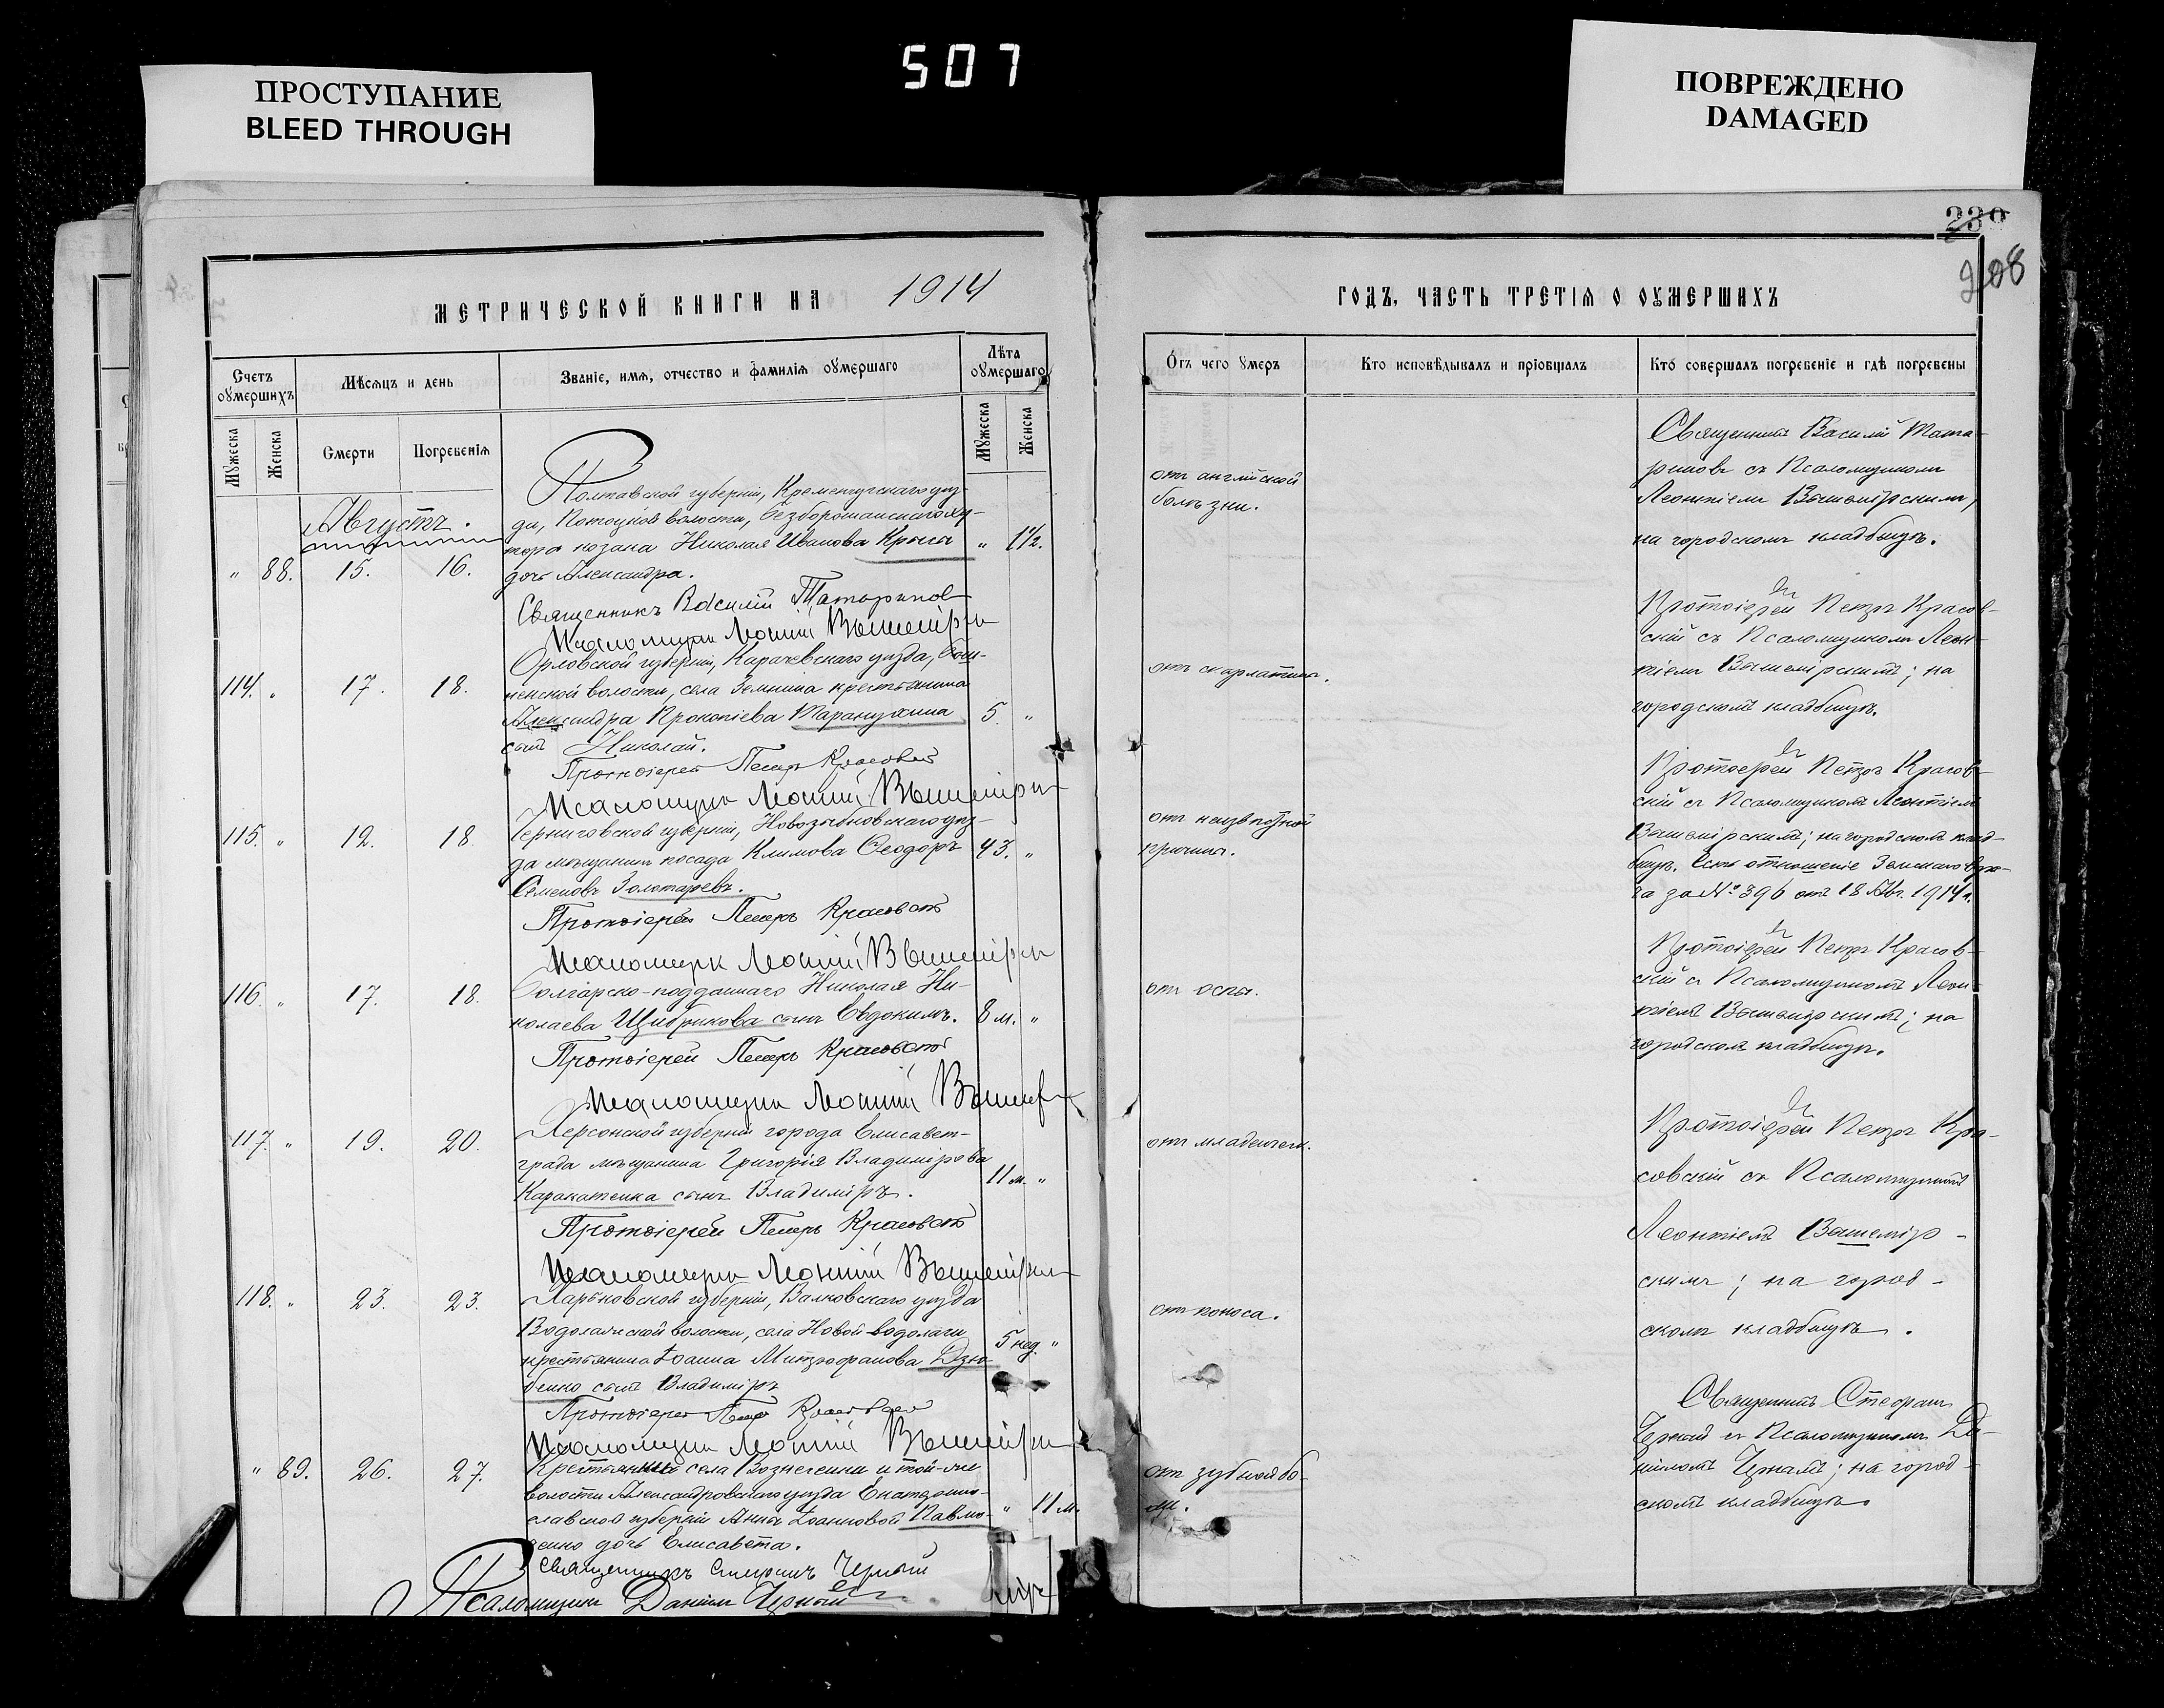 507
ПРОСТУПАНИЕ
BLEED THROUGH
ПОВРЕЖДЕНО
DAMAGED
239
208
МЕТРИЧЕСКОЙ КНИГИ НА 1914
ГОДЪ, ЧАСТЬ ТРЕТІЯ О ОУМЕРШИХЪ
Счетъ оумершихъ
Мѣсяцъ и день
Званіе, имя, отчество и фамилія оумершаго
Лѣта оумершаго
Мужеска
Женска
Смерти
Погребенія
Мужеска
Женска
Отъ чего умеръ
Кто исповѣдывалъ и пріобщалъ
Кто совершалъ погребеніе и гдѣ погребены
Августъ.
" 88. 15. 16.
Полтавской губерніи, Кременчугскаго уѣз-
да, Потоцкой волости,
тора козака Николая Иванова " 1½.
дочь Александра.
Священникъ Василій Татариновъ
Псаломщикъ
отъ англійской
болѣзни.
Священникъ Василій Тата-
риновъ съ Псаломщикомъ
Леонтіемъ Вышемірскимъ,
на городскомъ кладбищѣ.
114. " 17. 18.
Орловской губерніи, Карачевскаго уѣзда,
волости, села крестьянина
Александра Прокопіева Таранухина 5. "
сынъ Николай.
Протоіерей Петръ Красовскій
Псаломщикъ
отъ скарлатины.
Протоіерей Петръ Красов-
скій съ Псаломщикомъ Леон-
тіемъ Вышемірскимъ; на
городскомъ кладбищѣ.
115. " 12. 18.
Черниговской губерніи, Новозыбковскаго уѣз-
да мѣщанинъ посада Климова Ѳеодоръ 43. "
Семеновъ Золотаревъ.
Протоіерей Петръ Красовскій
Псаломщикъ
отъ неизвѣстной
причины.
Протоіерей Петръ Красов-
скій съ Псаломщикомъ Леонтіемъ
Вышемірскимъ; на городскомъ клад-
бищѣ. Есть отношеніе Земскаго вра-
ча за № 396 отъ 18 Авг. 1914 г.
116. " 17. 18.
Болгарско-подданнаго Николая Ни-
колаева Щибрикова сынъ Евдокимъ. 8 м. "
Протоіерей Петръ Красовскій
Псаломщикъ
отъ оспы.
Протоіерей Петръ Красов-
скій съ Псаломщикомъ Леон-
тіемъ Вышемірскимъ; на
городскомъ кладбищѣ.
117. " 19. 20.
Херсонской губерніи города Елисавет-
града мѣщанина Григорія Владимірова
сынъ Владиміръ. 11 м. "
Протоіерей Петръ Красовскій
Псаломщикъ
отъ младенчем.
Протоіерей Петръ Кра-
совскій съ Псаломщикомъ
Леонтіемъ Вышемір-
скимъ; на город-
скомъ кладбищѣ.
118. " 23. 23.
Харьковской губерніи, Валковскаго уѣзда
Водолажской волости, села Новой-водолаги
крестьянина Іоанна Митрофанова Дзю- 5 нед. "
бенко сынъ Владиміръ
Протоіерей Петръ Красовскій
Псаломщикъ
отъ поноса.
" 89. 26. 27.
Крестьянки села Вознесенки и той-же
волости Александровскаго уѣзда Екатерино-
славской губерніи Анны Іоанновой Павло- " 11 м.
дочь Елисавета.
Священникъ Стефанъ Черный
Псаломщикъ Даніилъ Черный
отъ зубной бо-
ли.
Священникъ Стефанъ
Черный съ Псаломщикомъ Да-
ніиломъ Чернымъ; на город-
скомъ кладбищѣ.